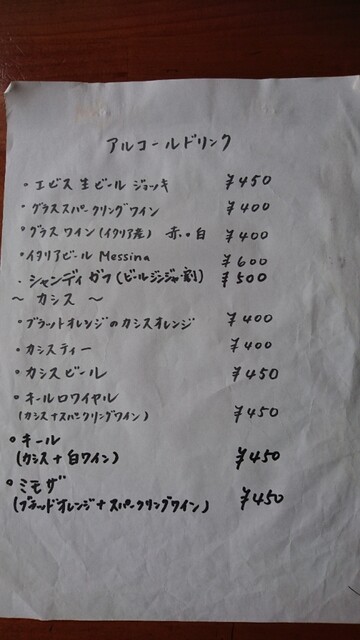 アルコールドリンク
・エビス 生ビール ジョッキ ¥450
・グラススパークリングワイン ¥400
・グラス ワイン(イタリア産) 赤・白 ¥400
・イタリアビール Messina ¥600
・シャンディ ガフ(ビールジンジャー割) ¥500
〜 カシス 〜
・ブラットオレンジのカシスオレンジ ¥400
・カシスティー ¥400
・カシスビール ¥450
・キールロワイヤル
(カシス+スパークリングワイン) ¥450
・キール
(カシス+白ワイン) ¥450
・ミモザ
(ブラッドオレンジ+スパークリングワイン) ¥450